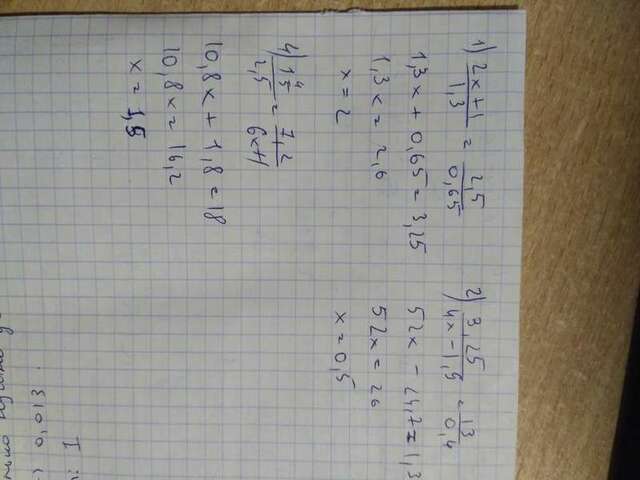 1) (2x+1)/1,3 = 2,5/0,65
1,3x + 0,65 = 3,25
1,3x = 2,6
x = 2
2) 3,25/(4x-1,9) = 13/0,4
52x - 24,7 = 1,3
52x = 26
x = 0,5
4) 1 4/5 / 2,5 = 7,2/(6x+1)
10,8x + 1,8 = 18
10,8x = 16,2
x = 1,5
I
0,013